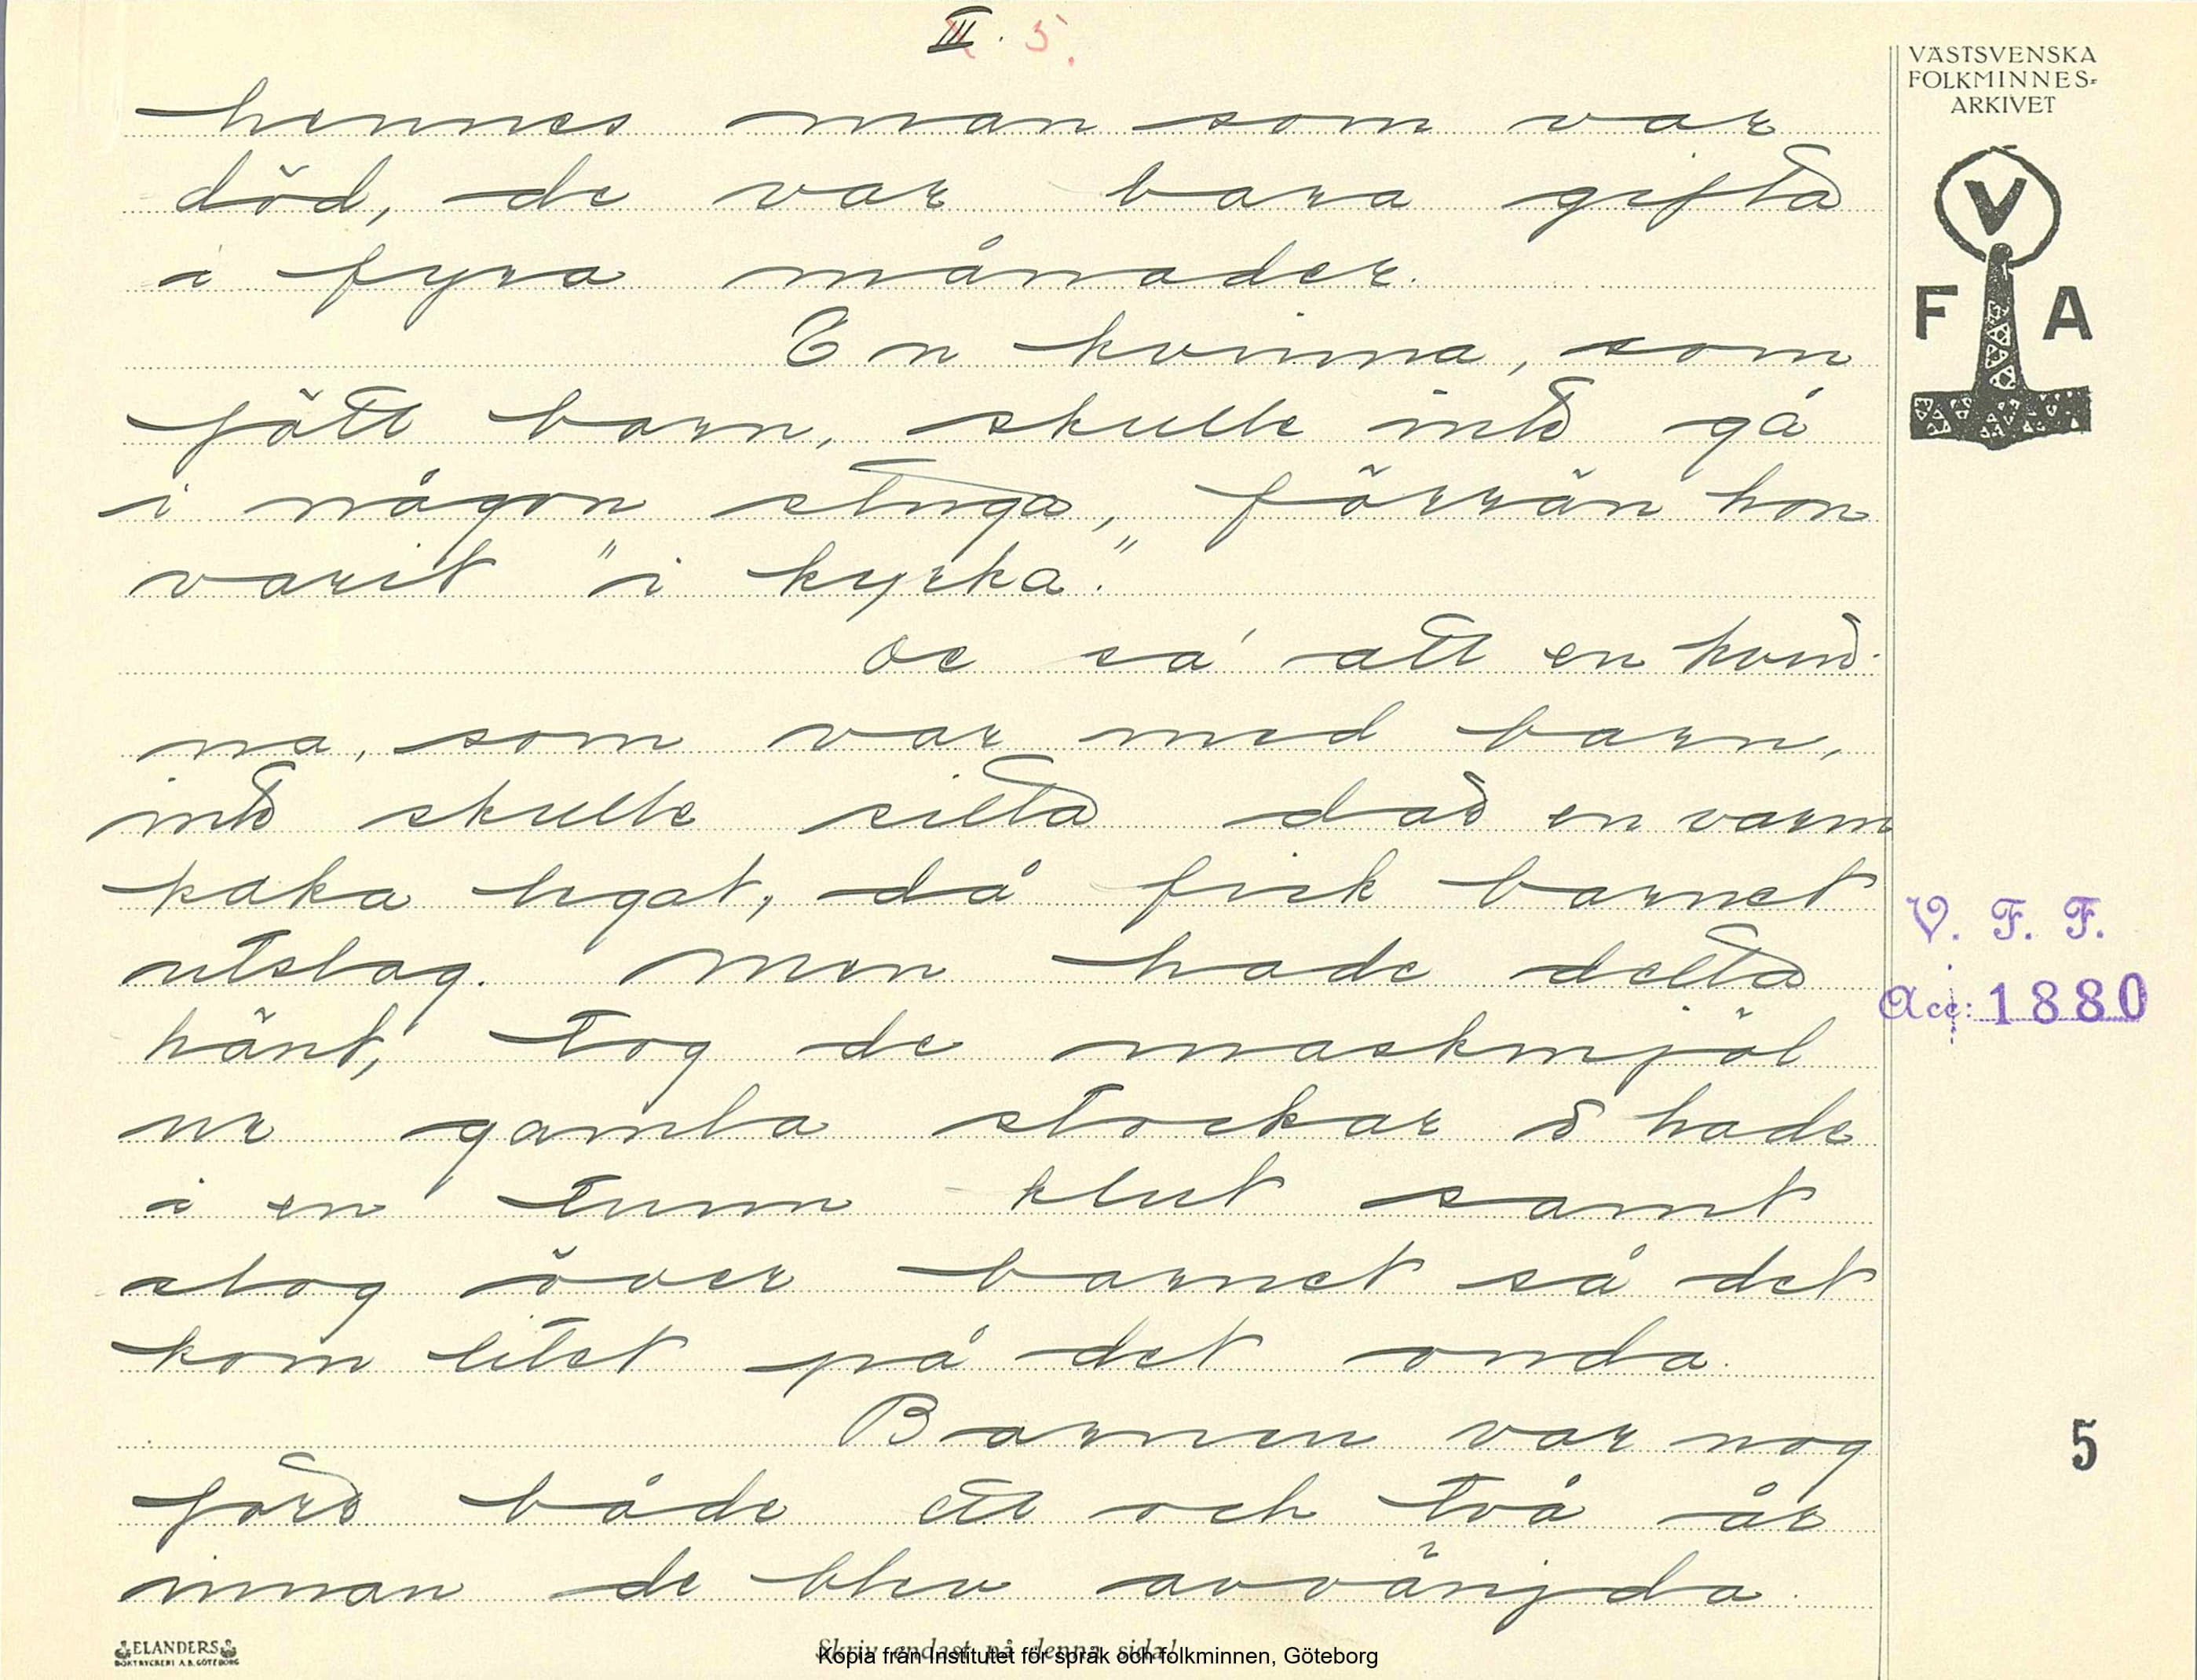 III. 5.
VÄSTSVENSKA
FOLKMINNES-
ARKIVET
V
F A
hennes man som var
död, de var bara gifta
i fyra månader.
En kvinna, som
fått barn, skulle inte gå
i någon stuga, förrän hon
varit "i kyrka."
De sa' att en kvin-
na, som var med barn,
inte skulle sitta där en varm
kaka legat, då fick barnet
utslag. Men hade detta
hänt, tog de maskmjöl
ur gamla stockar o hade
i en tunn klut samt
slog över barnet så det
kom litet på det onda.
Barnen var nog
före både ett och två år
innan de blev avvänjda.
V. F. F.
Acc: 1880
5
ELANDERS
BOKTRYCKERI A.B. GÖTEBORG
Skriv endast på denna sida!
Kopia från Institutet för språk och folkminnen, Göteborg